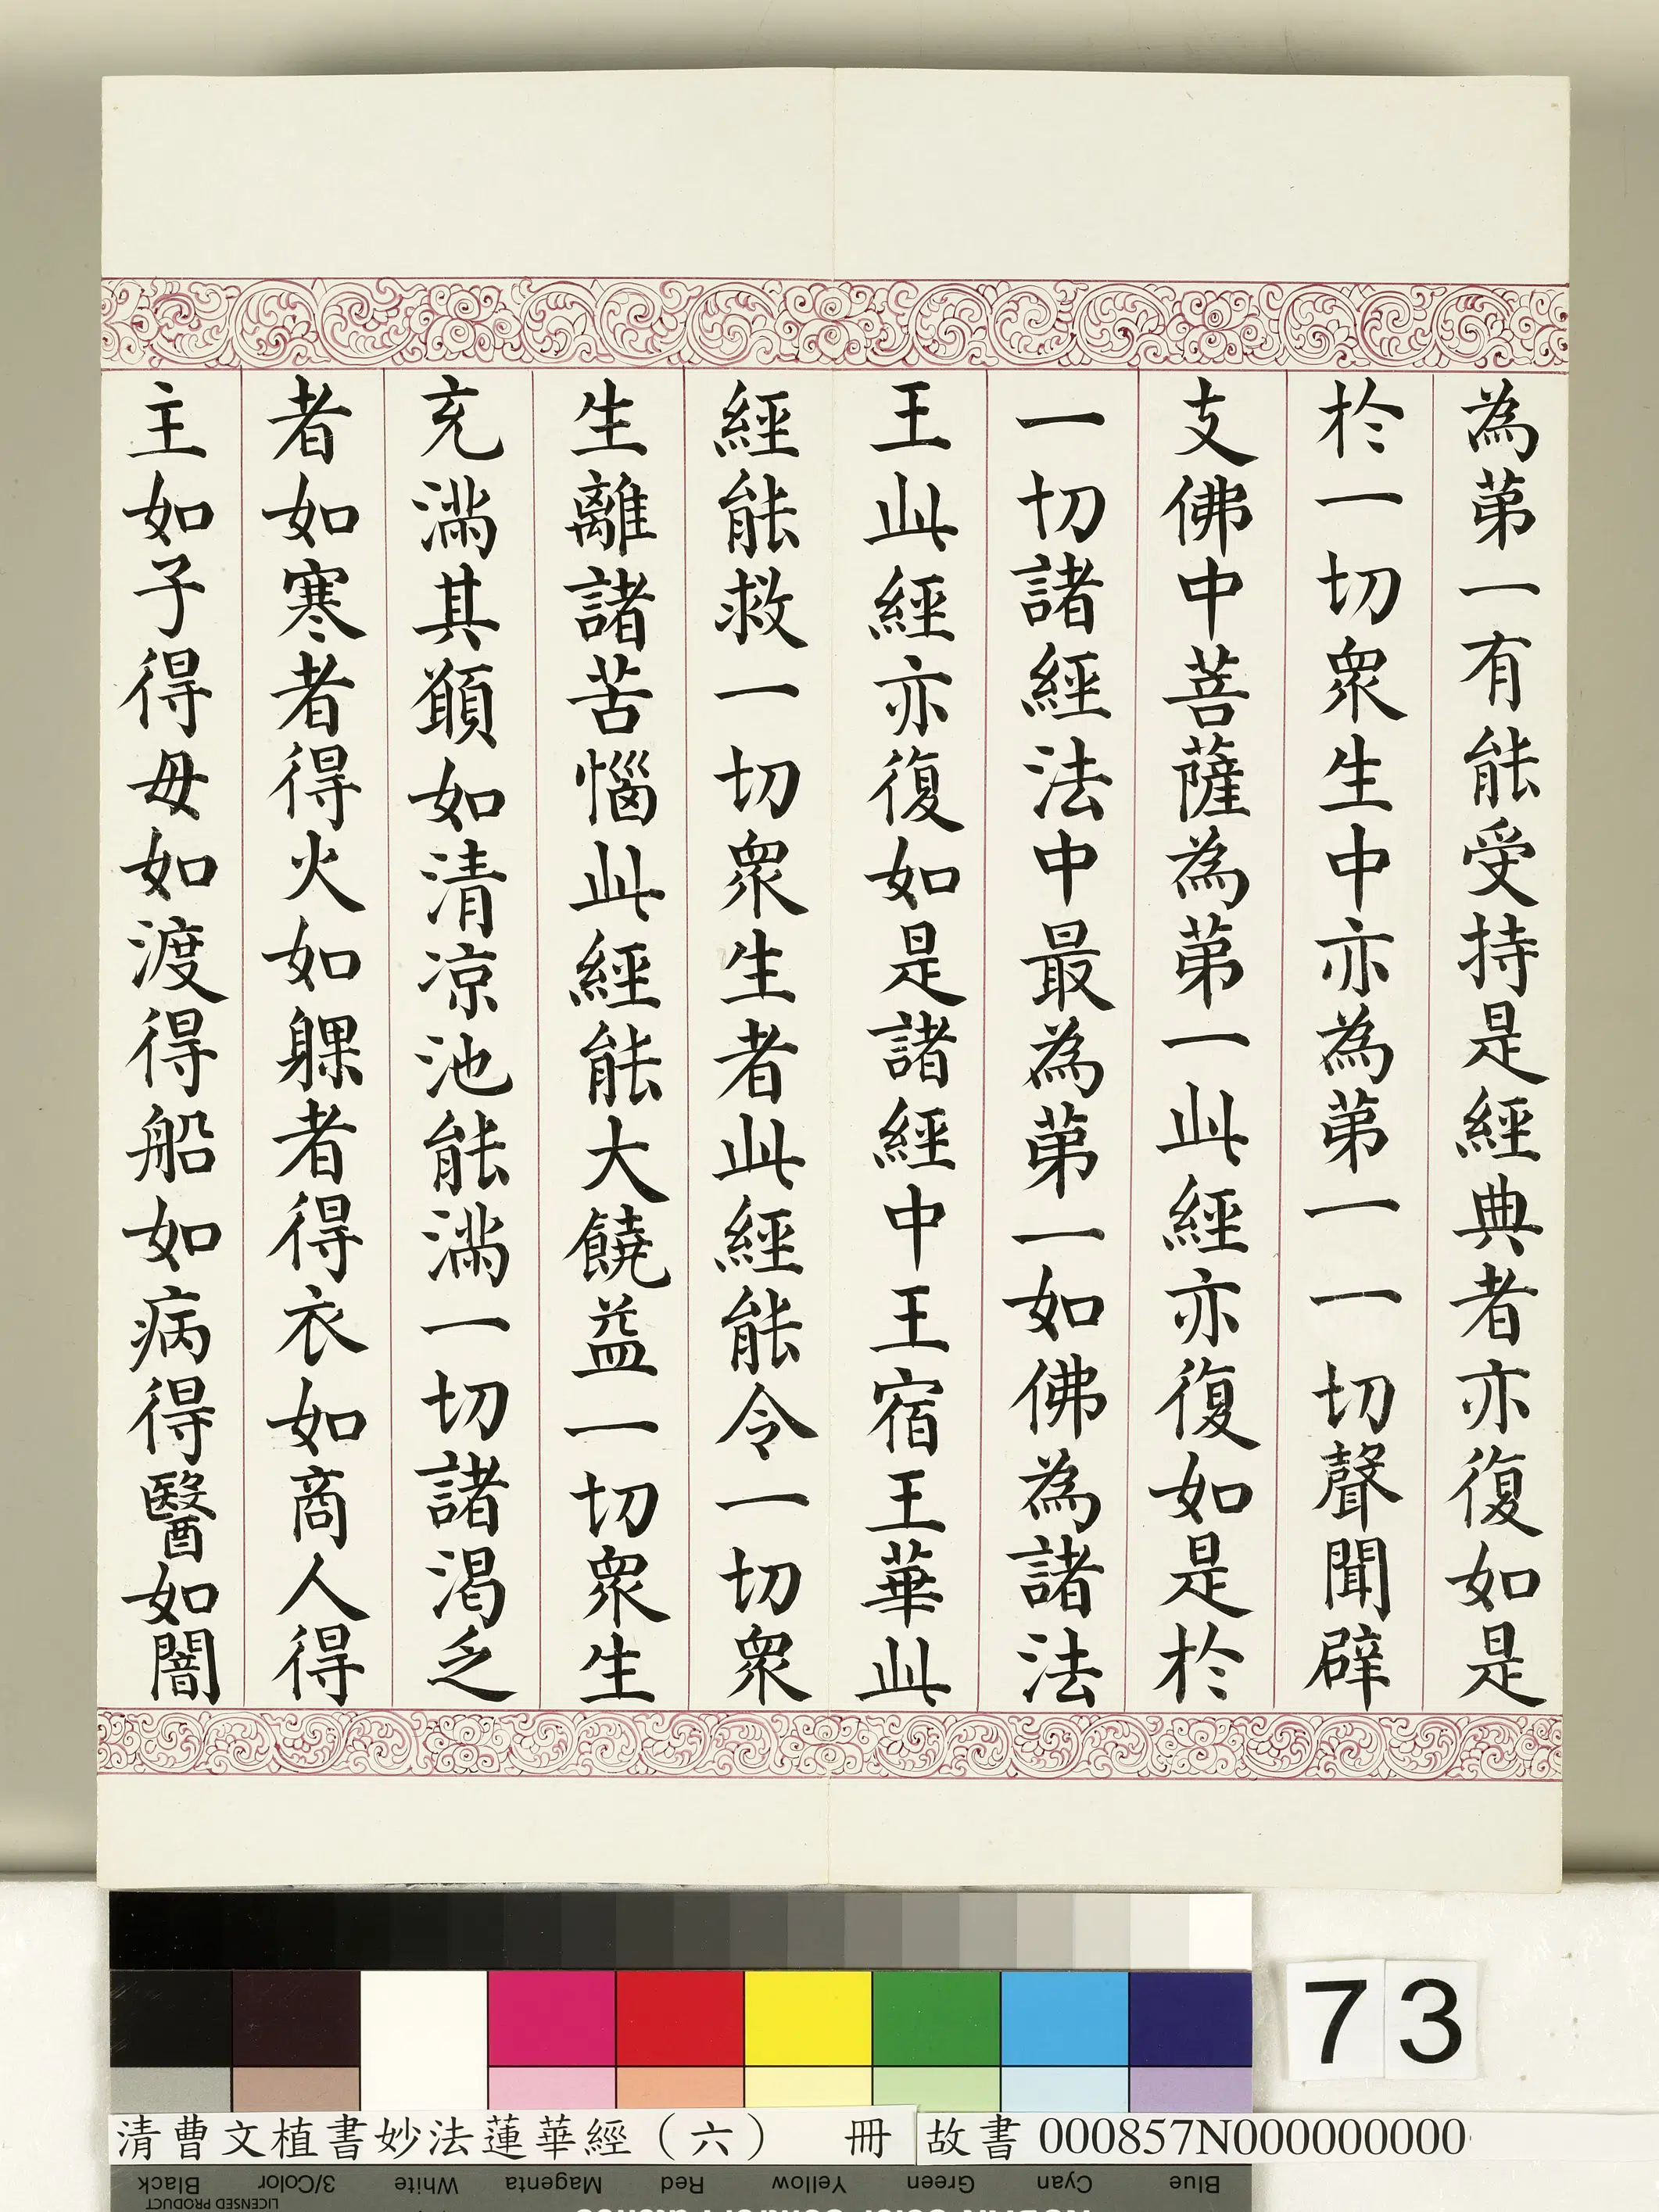 為苐一有能受持是經典者亦復如是
於一切衆生中亦為苐一一切聲聞辟
支佛中菩薩為苐一此經亦復如是於
一切諸經法中最為苐一如佛為諸法
王此經亦復如是諸經中王宿王華此
經能救一切衆生者此經能令一切衆
生離諸苦惱此經能大饒益一切衆生
充滿其願如清凉池能滿一切諸渴乏
者如寒者得火如躶者得衣如商人得
主如子得母如渡得船如病得醫如闇
73
清曹文植書妙法蓮華經（六） 冊
故書 000857N000000000
Black 3/Color White Magenta Red Yellow Green Cyan Blue
LICENSED PRODUCT